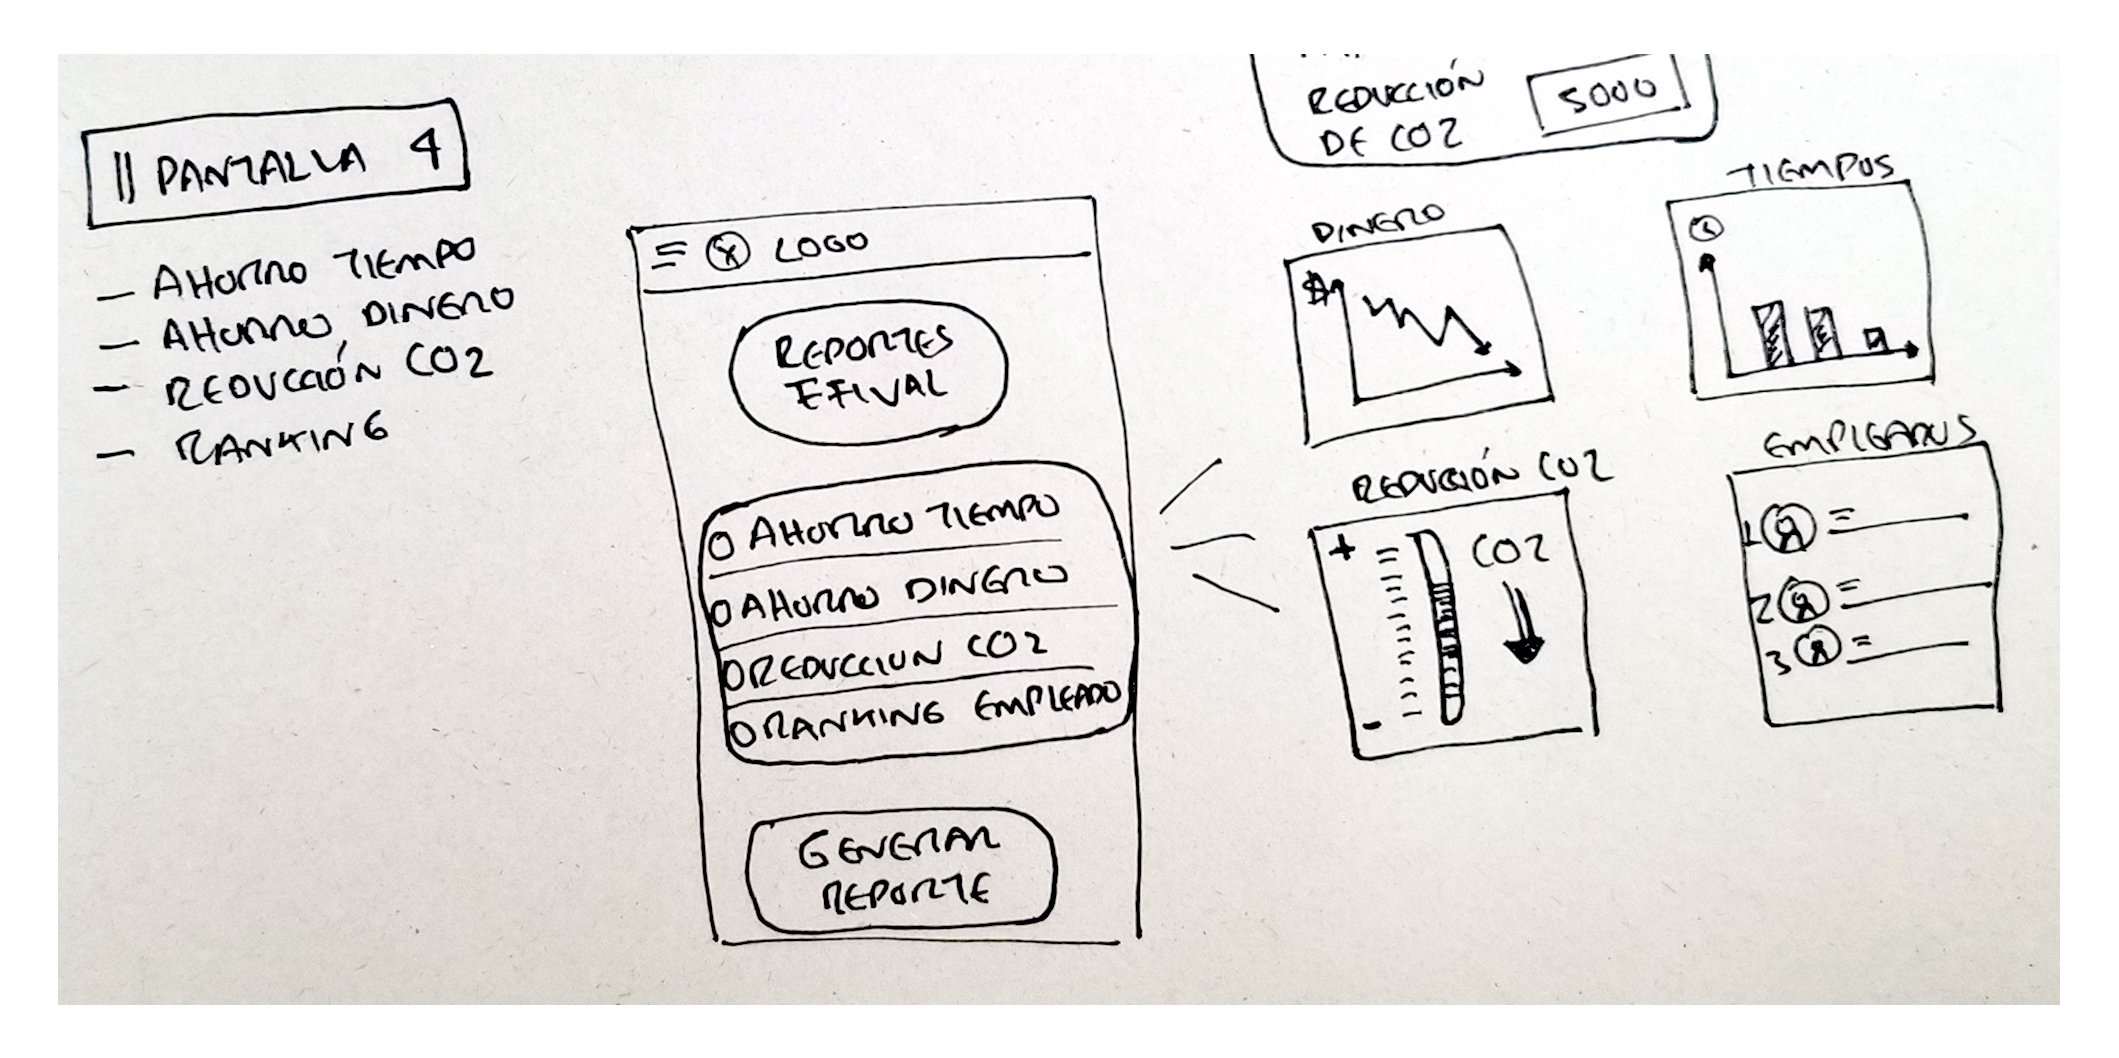 || PANTALLA 4
— AHORRO TIEMPO
— AHORRO DINERO
— REDUCCIÓN CO2
— RANKING
LOGO
REPORTES
EFIVAL
AHORRO TIEMPO
AHORRO DINERO
REDUCCION CO2
RANKING EMPLEADO
GENERAR
REPORTE
REDUCCIÓN
DE CO2
5000
DINERO
$
TIEMPOS
REDUCCIÓN CO2
+
CO2
-
EMPLEADOS
1
2
3